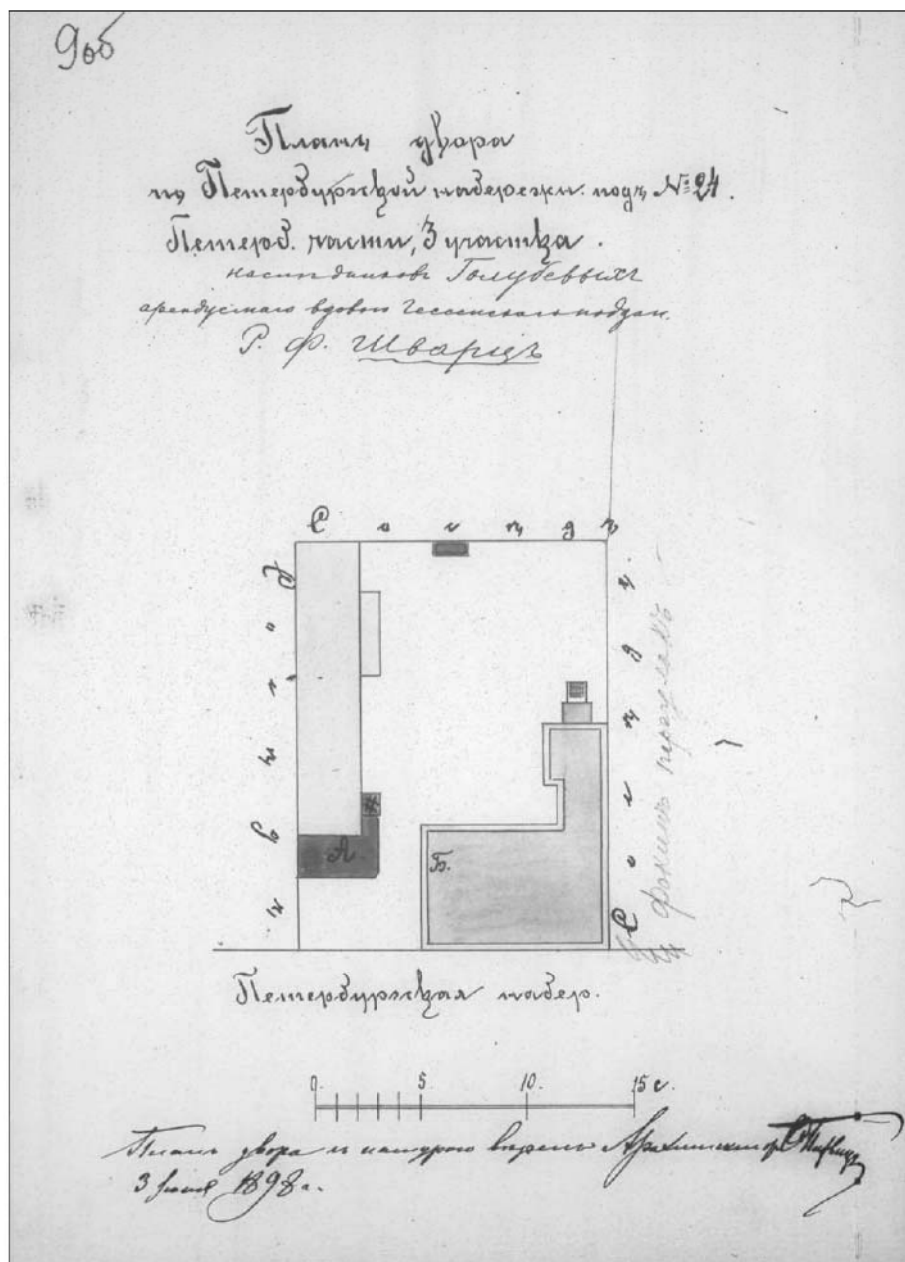 9об
Планъ двора
по Петербургской набережн. подъ №24.
Петерб. части, 3 участка.
наследниковъ Голубевыхъ
арендуемаго вдовою Гессенскаго поддан.
Р. Ф. Шварцъ
Сосѣдъ
Сосѣдъ
Сосѣдъ
Фокинъ переулокъ
А.
Б.
Петербургская набер.
0. 5. 10. 15 с.
Планъ двора съ натурою вѣренъ Архитекторъ
3 1898 г.